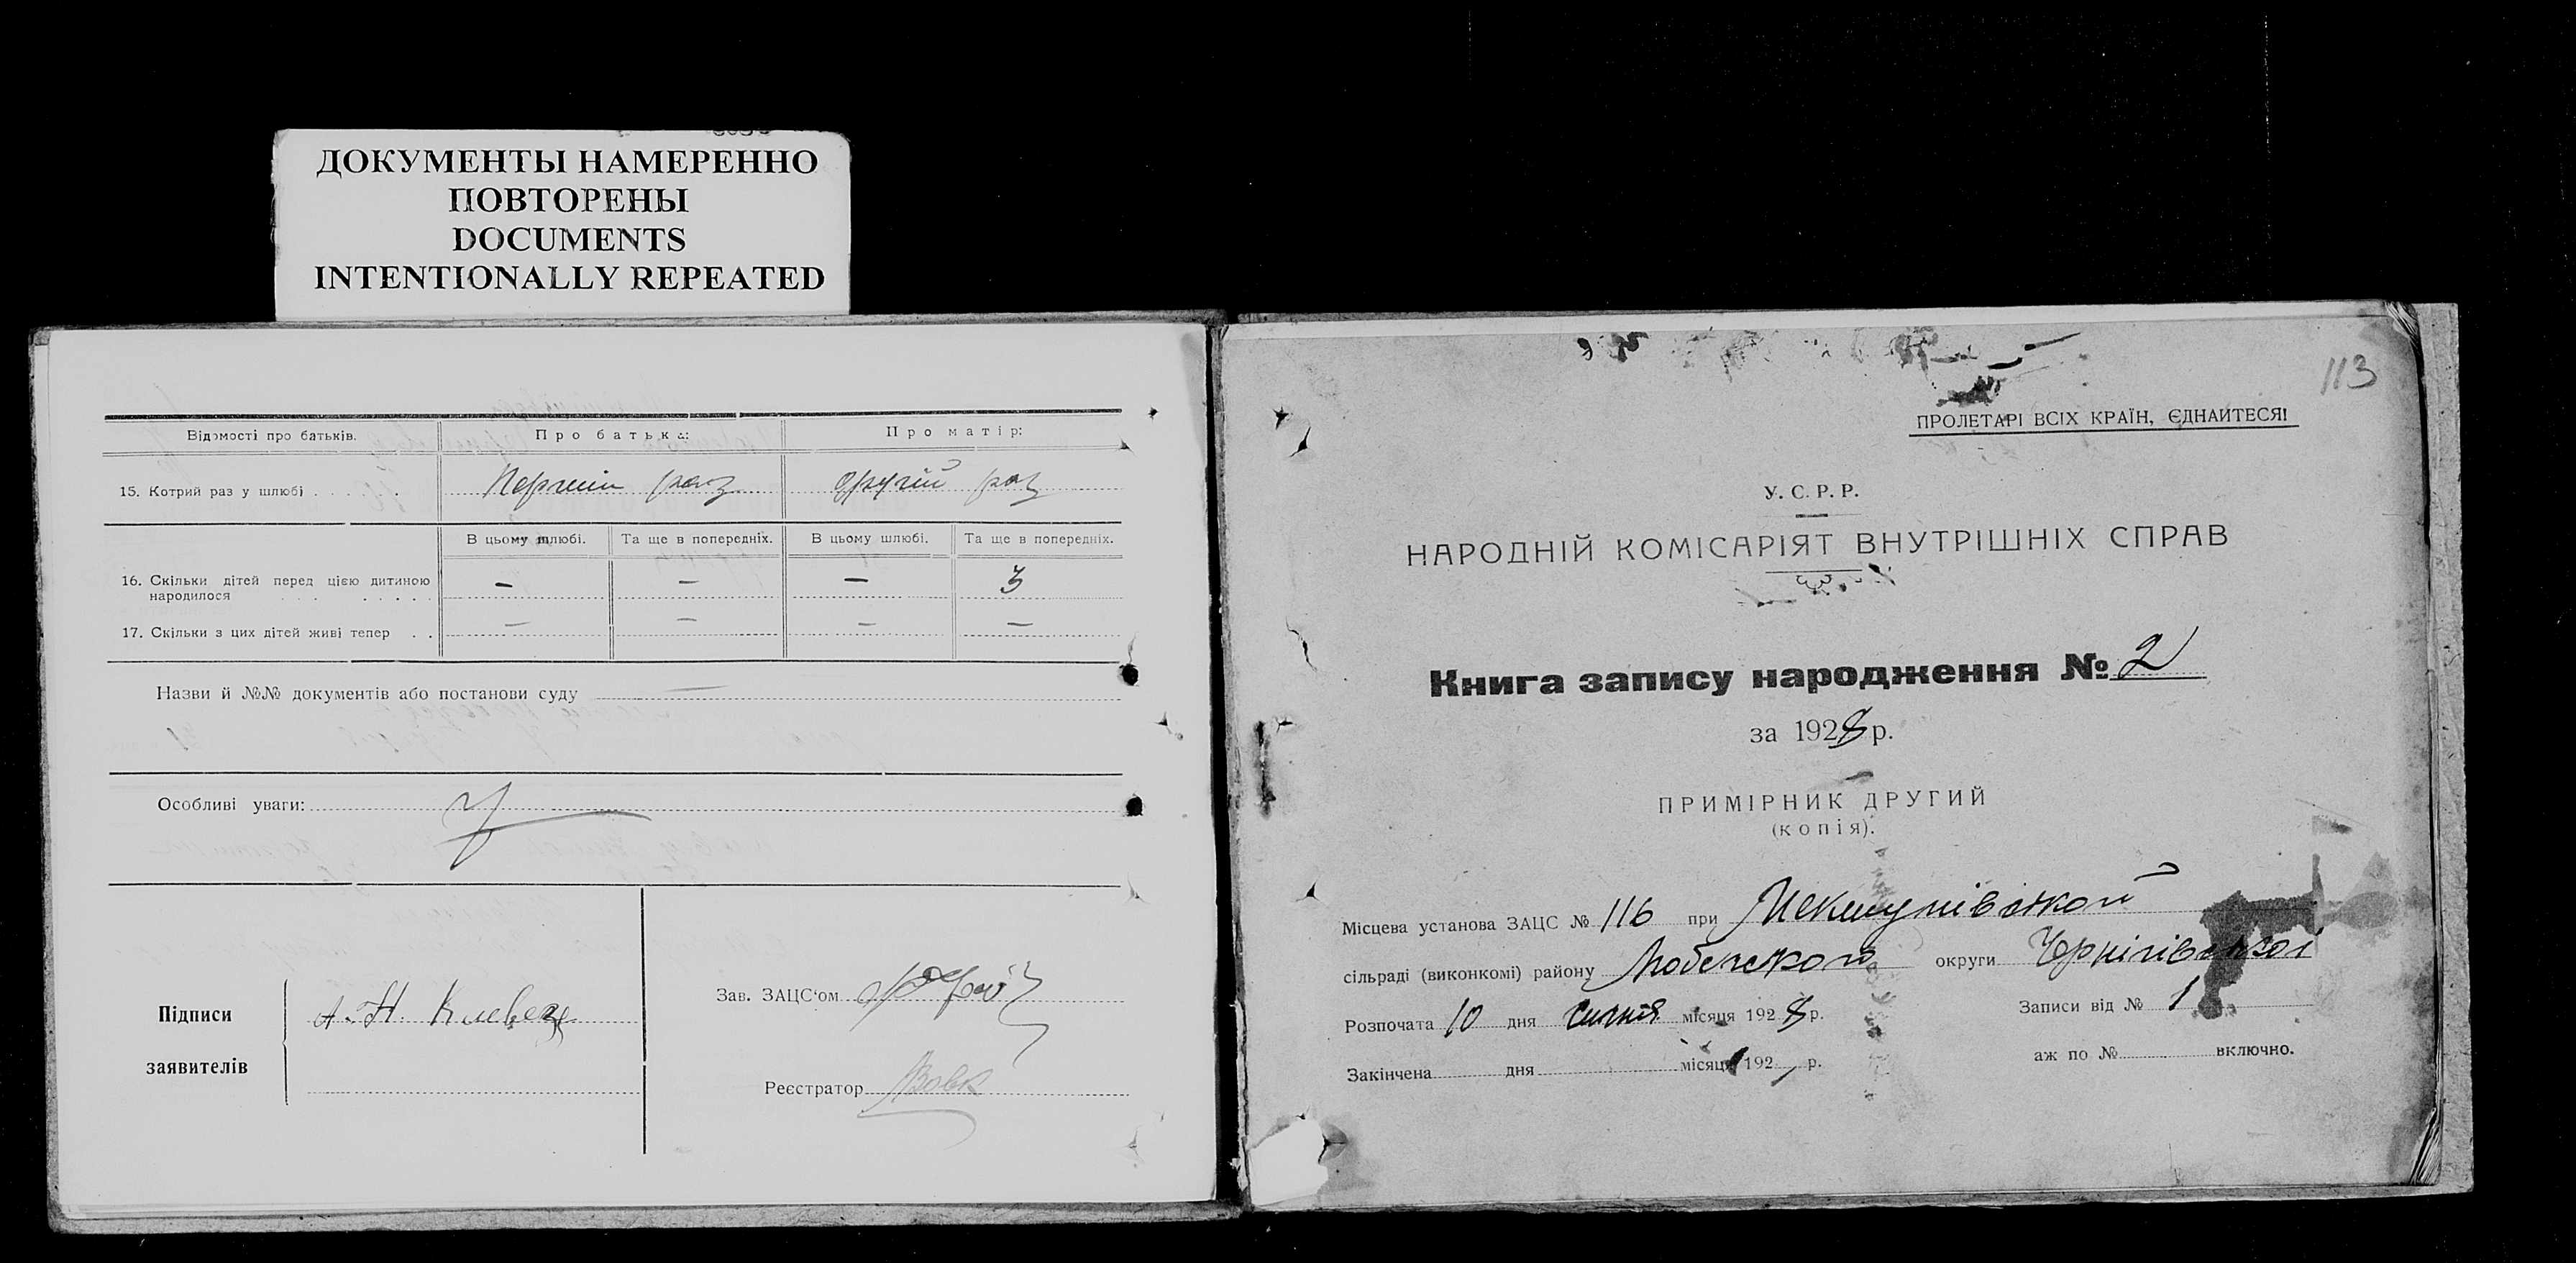 ДОКУМЕНТЫ НАМЕРЕННО
ПОВТОРЕНЫ
DOCUMENTS
INTENTIONALLY REPEATED
Відомості про батьків. Про батька: Про матір:
15. Котрий раз у шлюбі Перший раз другий раз
В цьому шлюбі. Та ще в попередніх. В цьому шлюбі. Та ще в попередніх.
16. Скільки дітей перед цією дитиною
народилося — — — 3
17. Скільки з цих дітей живі тепер — — — —
Назви й №№ документів або постанови суду —
Особливі уваги:
Підписи
заявителів
А. Н.
Зав. ЗАЦС'ом
Реєстратор Вовк
113
ПРОЛЕТАРІ ВСІХ КРАЇН, ЄДНАЙТЕСЯ!
У. С. Р. Р.
НАРОДНІЙ КОМІСАРІЯТ ВНУТРІШНІХ СПРАВ
Книга запису народження № 2
за 1928 р.
ПРИМІРНИК ДРУГИЙ
(копія).
Місцева установа ЗАЦС № 116 при
сільраді (виконкомі) району Любечского округи Чернігівської
Розпочата 10 дня січня місяця 1928 р. Записи від № 1
Закінчена дня місяця 192 р. аж по № включно.